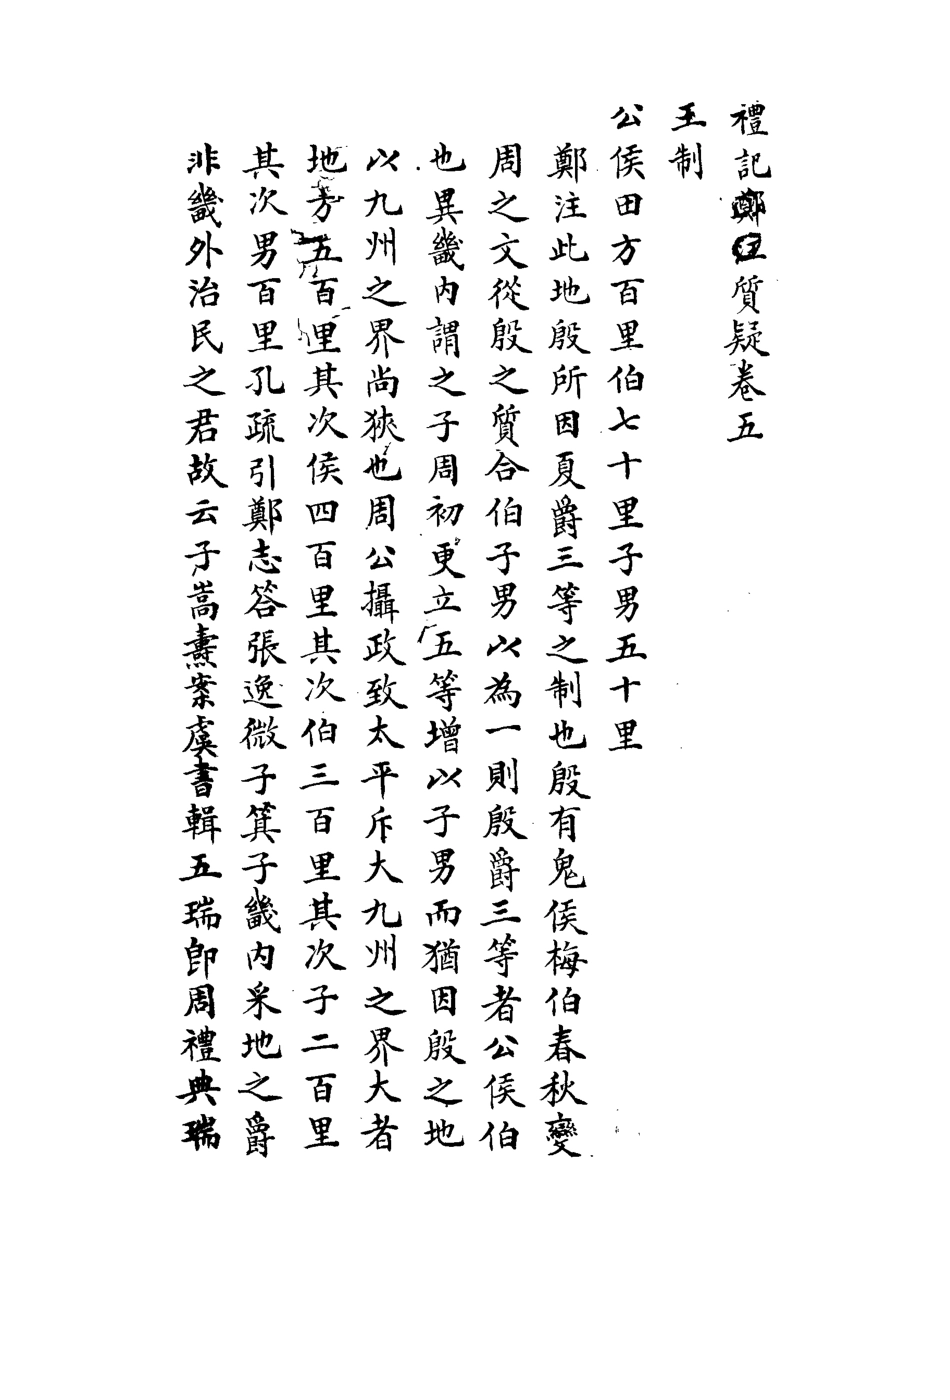 禮記鄭注質疑卷五
王制
公侯田方百里伯七十里子男五十里
鄭注此地殷所因夏爵三等之制也殷有鬼侯梅伯春秋變
周之文從殷之質合伯子男以為一則殷爵三等者公侯伯
也異畿內謂之子周初更立五等增以子男而猶因殷之地
以九州之界尚狹也周公攝政致太平斥大九州之界大者
地方五百里其次侯四百里其次伯三百里其次子二百里
其次男百里孔疏引鄭志答張逸微子箕子畿內采地之爵
非畿外治民之君故云子嵩燾案虞書輯五瑞卽周禮典瑞